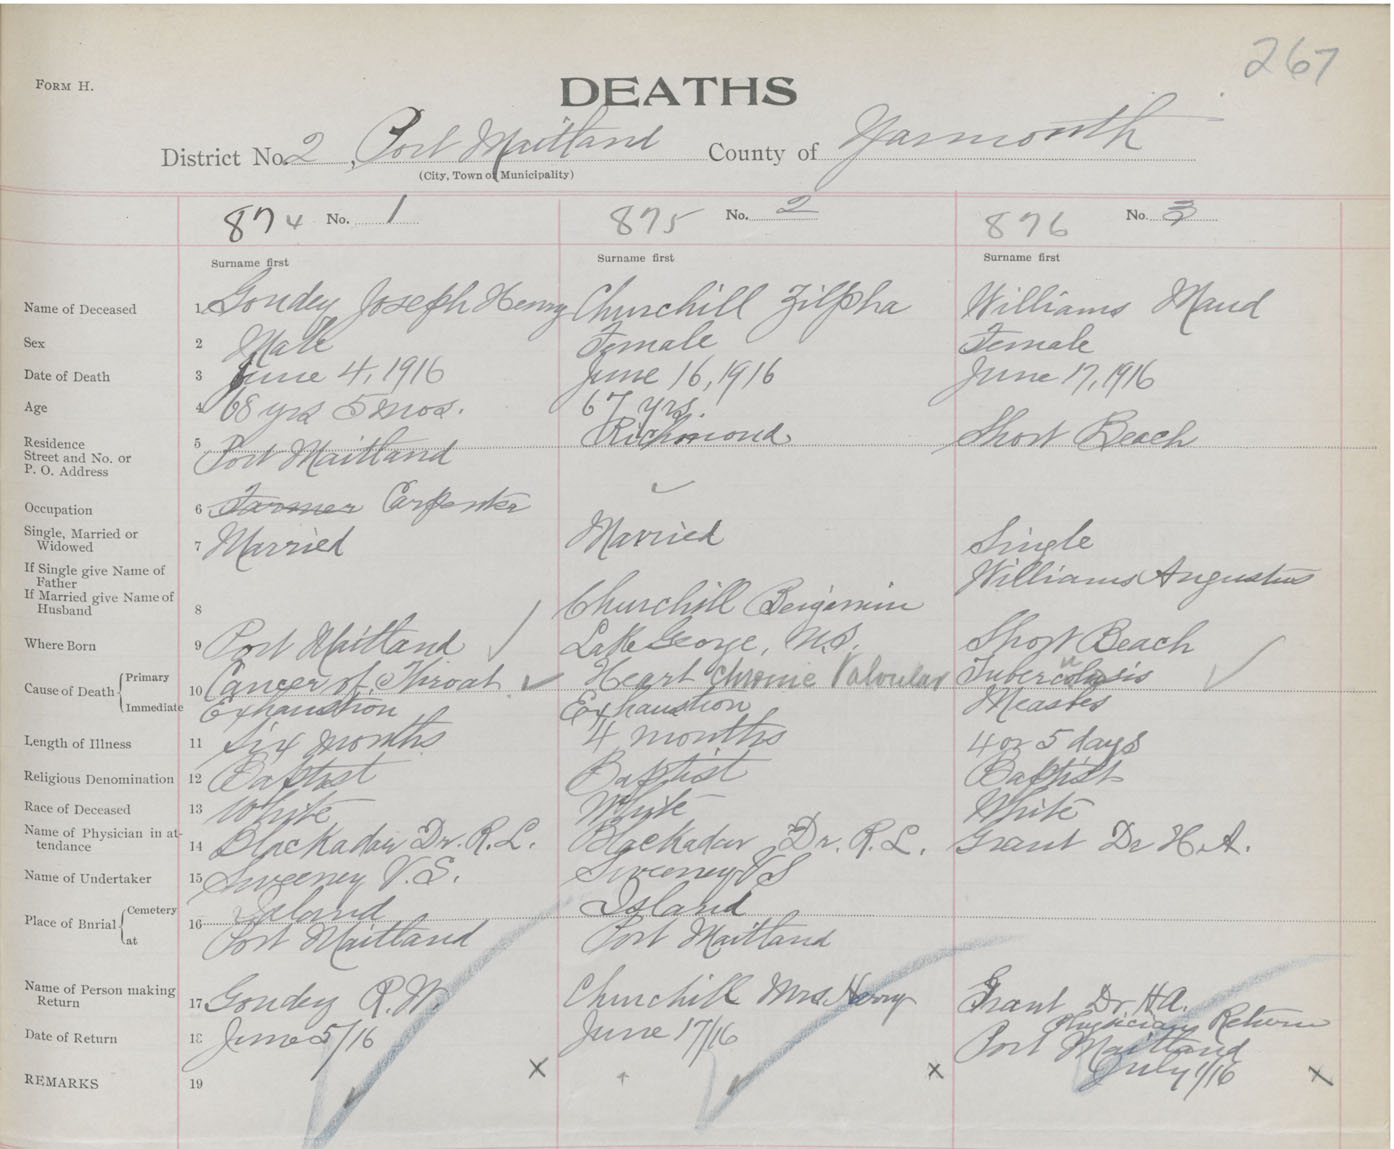 267
FORM H.
DEATHS
District No. 2, Port Maitland County of Yarmouth
(City, Town or Municipality)
874 No. 1 875 No. 2 876 No. 3
Surname first Surname first Surname first
Name of Deceased 1 Goudey Joseph Henry Churchill Zilpha Williams Maud
Sex 2 Male Female Female
Date of Death 3 June 4, 1916 June 16, 1916 June 17, 1916
Age 4 68 yrs 5 mos. 67 yrs.
Residence 5 Richmond Short Beach
Street and No. or Port Maitland
P. O. Address
Occupation 6 Farmer Carpenter
Single, Married or
Widowed 7 Married Married Single
If Single give Name of
Father Williams Augustus
If Married give Name of
Husband 8 Churchill Benjamin
Where Born 9 Port Maitland Lake George, N.S. Short Beach
Cause of Death Primary 10 Cancer of Throat Heart chronic Valvular Tuberculosis
Immediate Exhaustion Exhaustion Measles
Length of Illness 11 Six months 4 months 4 or 5 days
Religious Denomination 12 Baptist Baptist Baptist
Race of Deceased 13 White White White
Name of Physician in at-
tendance 14 Blackadar Dr. R. L. Blackadar Dr. R. L. Grant Dr H. A.
Name of Undertaker 15 Sweeney V. S. Sweeney V S
Place of Burial Cemetery 16 Island Island
at Port Maitland Port Maitland
Name of Person making
Return 17 Goudey R. W. Churchill Mrs. Henry Grant Dr. H A.
Physicians Return
Date of Return 18 June 5/16 June 17/16 Port Maitland
July 1/16
REMARKS 19 x x x